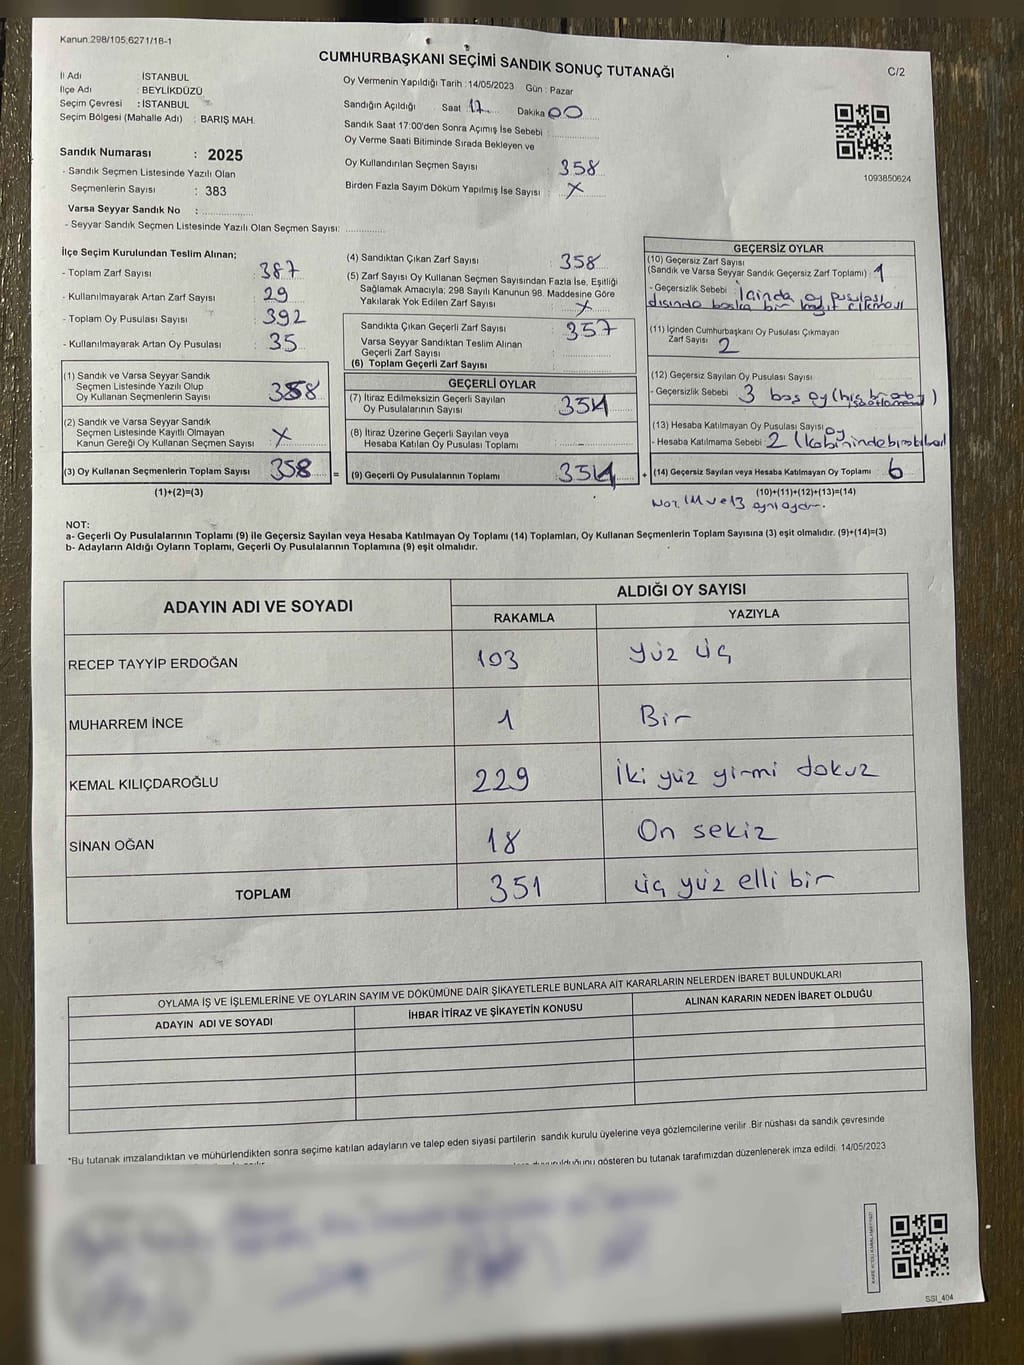 Kanun 298/105,6271/18-1
CUMHURBAŞKANI SEÇİMİ SANDIK SONUÇ TUTANAĞI
C/2
İl Adı İSTANBUL
İlçe Adı : BEYLİKDÜZÜ
Seçim Çevresi : İSTANBUL
Seçim Bölgesi (Mahalle Adı) : BARIŞ MAH.
Sandık Numarası : 2025
- Sandık Seçmen Listesinde Yazılı Olan
Seçmenlerin Sayısı : 383
Varsa Seyyar Sandık No :
- Seyyar Sandık Seçmen Listesinde Yazılı Olan Seçmen Sayısı:
Oy Vermenin Yapıldığı Tarih : 14/05/2023 Gün : Pazar
Sandığın Açıldığı Saat 17 Dakika 00
Sandık Saat 17:00'den Sonra Açımış İse Sebebi :
Oy Verme Saati Bitiminde Sırada Bekleyen ve
Oy Kullandırılan Seçmen Sayısı : 358
Birden Fazla Sayım Döküm Yapılmış İse Sayısı : X
1093850624
İlçe Seçim Kurulundan Teslim Alınan;
- Toplam Zarf Sayısı : 387
- Kullanılmayarak Artan Zarf Sayısı : 29
- Toplam Oy Pusulası Sayısı : 392
- Kullanılmayarak Artan Oy Pusulası : 35
(1) Sandık ve Varsa Seyyar Sandık
Seçmen Listesinde Yazılı Olup
Oy Kullanan Seçmenlerin Sayısı 358
(2) Sandık ve Varsa Seyyar Sandık
Seçmen Listesinde Kayıtlı Olmayan
Kanun Gereği Oy Kullanan Seçmen Sayısı X
(3) Oy Kullanan Seçmenlerin Toplam Sayısı 358 =
(1)+(2)=(3)
(4) Sandıktan Çıkan Zarf Sayısı : 358
(5) Zarf Sayısı Oy Kullanan Seçmen Sayısından Fazla İse, Eşitliği
Sağlamak Amacıyla; 298 Sayılı Kanunun 98. Maddesine Göre
Yakılarak Yok Edilen Zarf Sayısı : X
Sandıkta Çıkan Geçerli Zarf Sayısı : 357
Varsa Seyyar Sandıktan Teslim Alınan
Geçerli Zarf Sayısı :
(6) Toplam Geçerli Zarf Sayısı :
GEÇERLİ OYLAR
(7) İtiraz Edilmeksizin Geçerli Sayılan
Oy Pusulalarının Sayısı :
(8) İtiraz Üzerine Geçerli Sayılan veya
Hesaba Katılan Oy Pusulaları Toplamı :
(9) Geçerli Oy Pusulalarının Toplamı +
GEÇERSİZ OYLAR
(10) Geçersiz Zarf Sayısı
(Sandık ve Varsa Seyyar Sandık Geçersiz Zarf Toplamı) : 1
- Geçersizlik Sebebi : İçinda oy pusulası
dısında baska bir kagıt cıkması
(11) İçinden Cumhurbaşkanı Oy Pusulası Çıkmayan
Zarf Sayısı : 2
(12) Geçersiz Sayılan Oy Pusulası Sayısı
- Geçersizlik Sebebi 3 bos oy (hiç bir aday )
(13) Hesaba Katılmayan Oy Pusulası Sayısı oy
- Hesaba Katılmama Sebebi : 2 (kabininde
(14) Geçersiz Sayılan veya Hesaba Katılmayan Oy Toplamı : 6
(10)+(11)+(12)+(13)=(14)
Not. 11 ve 13 aynı oydur.
NOT:
a- Geçerli Oy Pusulalarının Toplamı (9) ile Geçersiz Sayılan veya Hesaba Katılmayan Oy Toplamı (14) Toplamları, Oy Kullanan Seçmenlerin Toplam Sayısına (3) eşit olmalıdır. (9)+(14)=(3)
b- Adayların Aldığı Oyların Toplamı, Geçerli Oy Pusulalarının Toplamına (9) eşit olmalıdır.
ADAYIN ADI VE SOYADI ALDIĞI OY SAYISI
RAKAMLA YAZIYLA
RECEP TAYYİP ERDOĞAN 103 yüz üç
MUHARREM İNCE 1 Bir
KEMAL KILIÇDAROĞLU 229 iki yüz yirmi dokuz
SİNAN OĞAN 18 On sekiz
TOPLAM 351 üç yüz elli bir
OYLAMA İŞ VE İŞLEMLERİNE VE OYLARIN SAYIM VE DÖKÜMÜNE DAİR ŞİKAYETLERLE BUNLARA AİT KARARLARIN NELERDEN İBARET BULUNDUKLARI
ADAYIN ADI VE SOYADI İHBAR İTİRAZ VE ŞİKAYETİN KONUSU ALINAN KARARIN NEDEN İBARET OLDUĞU
*Bu tutanak imzalandıktan ve mühürlendikten sonra seçime katılan adayların ve talep eden siyasi partilerin sandık kurulu üyelerine veya gözlemcilerine verilir. Bir nüshası da sandık çevresinde
gösteren bu tutanak tarafımızdan düzenlenerek imza edildi. 14/05/2023
SSI_404